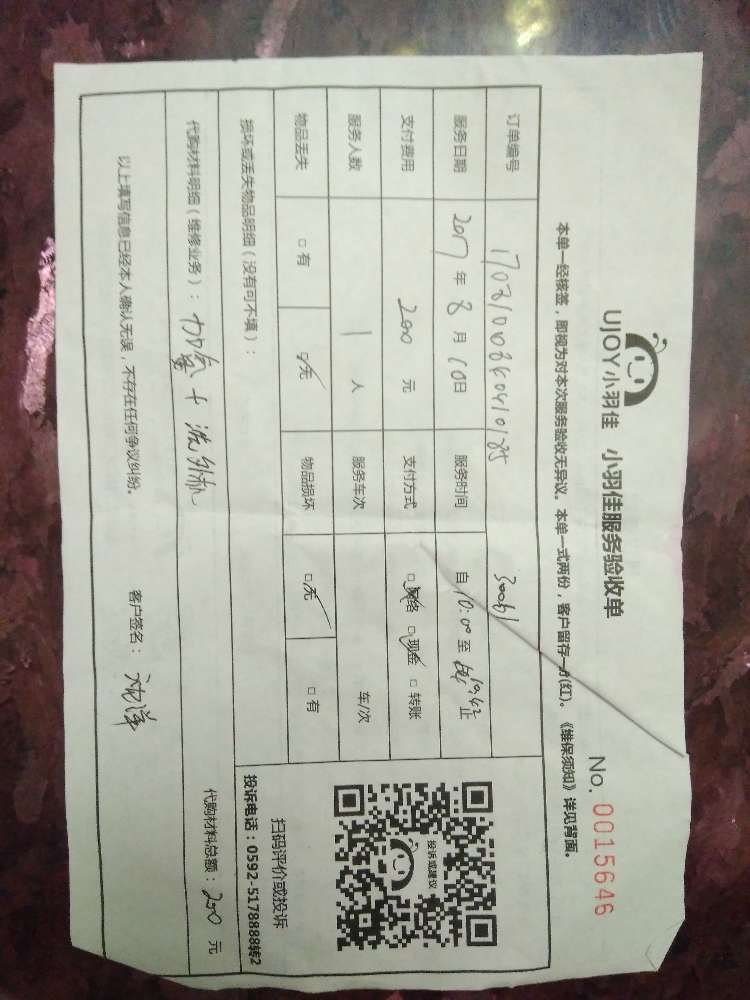 UJOY小羽佳 小羽佳服务验收单
No. 0015646
本单一经核签，即视为对本次服务验收无异议。本单一式两份，客户留存一份(红)。《维保须知》详见背面。
订单编号
服务日期 2017 年 8 月 10 日 服务时间 自 10:00 至 10:42 止
支付费用 200 元 支付方式 □网络 □现金 □转账
服务人数 1 人 服务车次 车/次
物品丢失 □有 □无 物品损坏 □无 □有
损坏或丢失物品明细（没有可不填）：
投诉或建议
扫码评价或投诉
投诉电话：0592-5178888转2
代购材料明细（维修业务）： 洗外机 代购材料总额：200 元
以上填写信息已经本人确认无误，不存在任何争议纠纷。 客户签名：